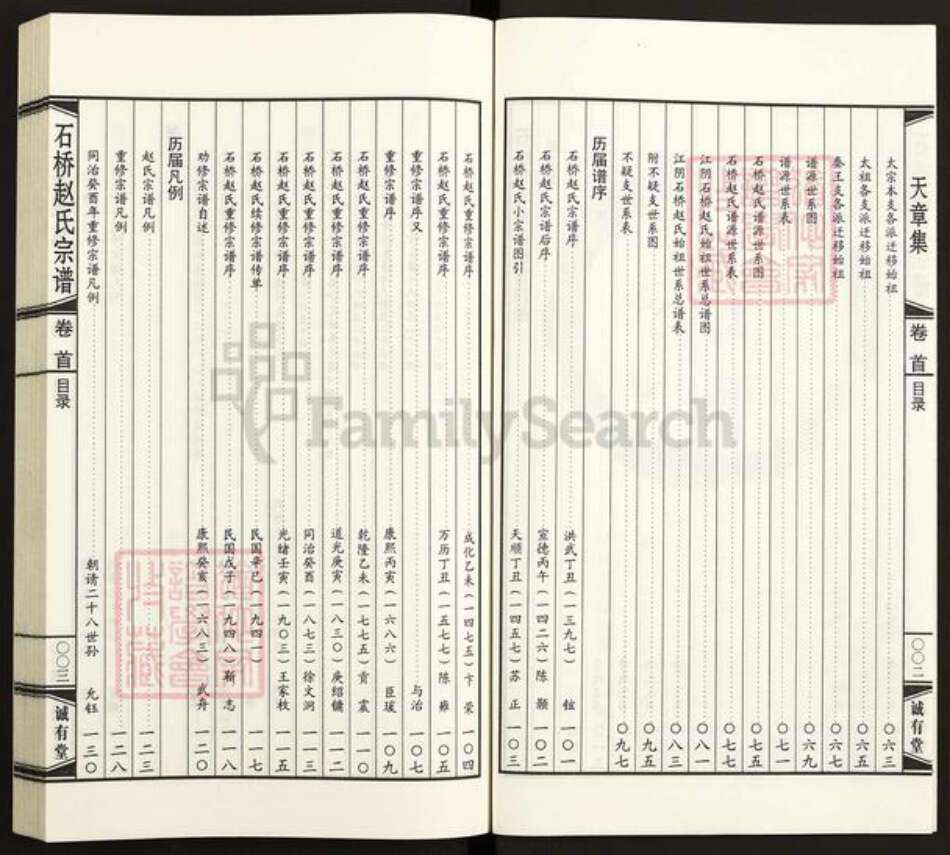 天章集
卷首
目录
〇〇二
诚有堂
太宗本支各派迁移始祖 〇六三
太祖各支派迁移始祖 〇六五
秦王支各派迁移始祖 〇六七
谱源世系图 〇六九
谱源世系表 〇七一
石桥赵氏谱源世系图 〇七五
石桥赵氏谱源世系表 〇七七
江阴石桥赵氏始祖世系总谱图 〇八一
江阴石桥赵氏始祖世系总谱表 〇八三
附不疑支世系图 〇九五
不疑支世系表 〇九七
历届谱序
石桥赵氏宗谱序 洪武丁丑(一三九七) 铉 一〇一
石桥赵氏宗谱后序 宣德丙午(一四二六)陈颢 一〇二
石桥赵氏小宗谱图引 天顺丁丑(一四五七)苏正 一〇三
石桥赵氏重修宗谱序 成化乙未(一四七五)卞荣 一〇四
石桥赵氏重修宗谱序 万历丁丑(一五七七)陈雍 一〇五
重修宗谱序又 与治 一〇七
重修宗谱序 康熙丙寅(一六八六) 臣瑗 一〇九
石桥赵氏重修宗谱序 乾隆乙未(一七七五)贡震 一一〇
石桥赵氏重修宗谱序 道光庚寅(一八三〇)庚绍镛 一一二
石桥赵氏重修宗谱序 同治癸酉(一八七三)徐文洞 一一三
石桥赵氏重修宗谱序 光绪壬寅(一九〇三)王家枚 一一五
石桥赵氏续修宗谱传单 民国辛巳(一九四一) 一一七
石桥赵氏重修宗谱序 民国戊子(一九四八)靳志 一一八
劝修宗谱自述 康熙癸亥(一六八三) 武舟 一二〇
历届凡例
赵氏宗谱凡例 一二三
重修宗谱凡例 一二八
同治癸酉年重修宗谱凡例 朝请二十八世孙 允钰 一三〇
石桥赵氏宗谱
卷首
目录
〇〇三
诚有堂
FamilySearch